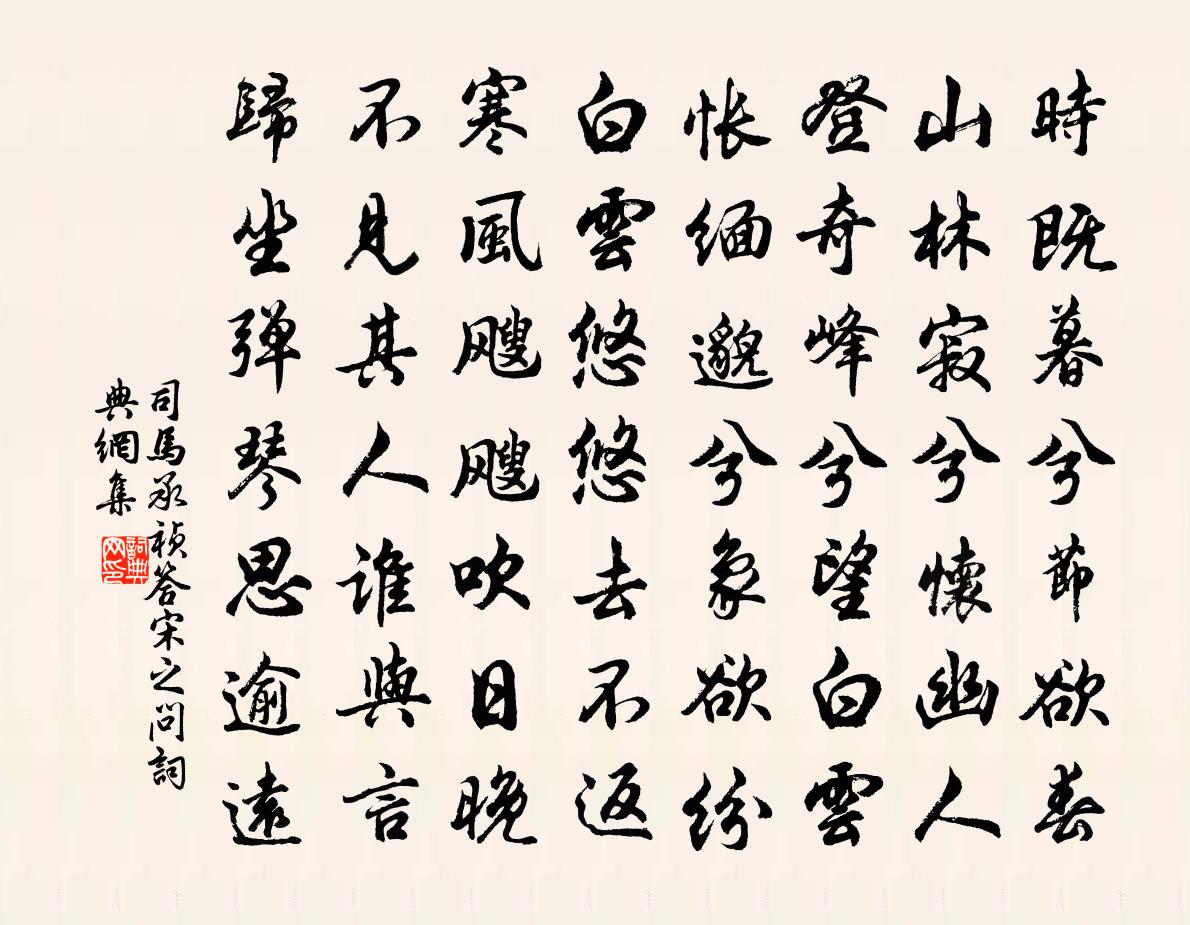 時既暮兮節欲春
山林寂兮懷幽人
登奇峰兮望白雲
悵緬邈兮象欲紛
白雲悠悠去不返
寒風颼颼吹日晚
不見其人誰與言
歸坐彈琴思逾遠
司馬承禎答宋之問詞
典網集
詞典网印